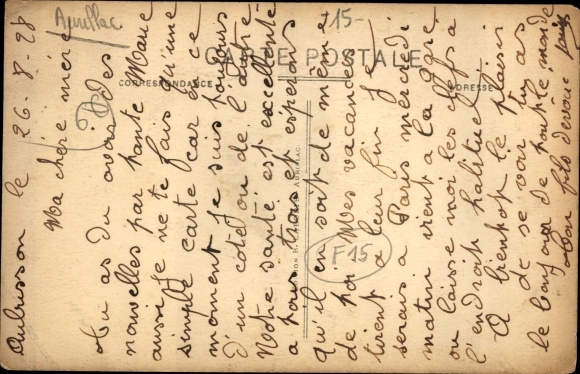 Aurillac
15-
CARTE POSTALE
CORRESPONDANCE
ADRESSE
F15
Aubusson le 26-8-28
Ma chère mère
Tu as du avoir des
nouvelles par tante Marie
aussi je ne te fais qu'une
simple carte car en ce
moment je suis toujours
d'un côté ou de l'autre
Notre santé est excellente
a tous trois et espérons
qu'il en soit de même
de toi Mes vacances
tirent a leur fin Je
serais a Paris mercredi
matin vient a la gare
ou laisse moi les clefs a
l'endroit habituel
A bientot le plaisir
de se voir tu as
le bonjour de tout le monde
ton fils dévoué